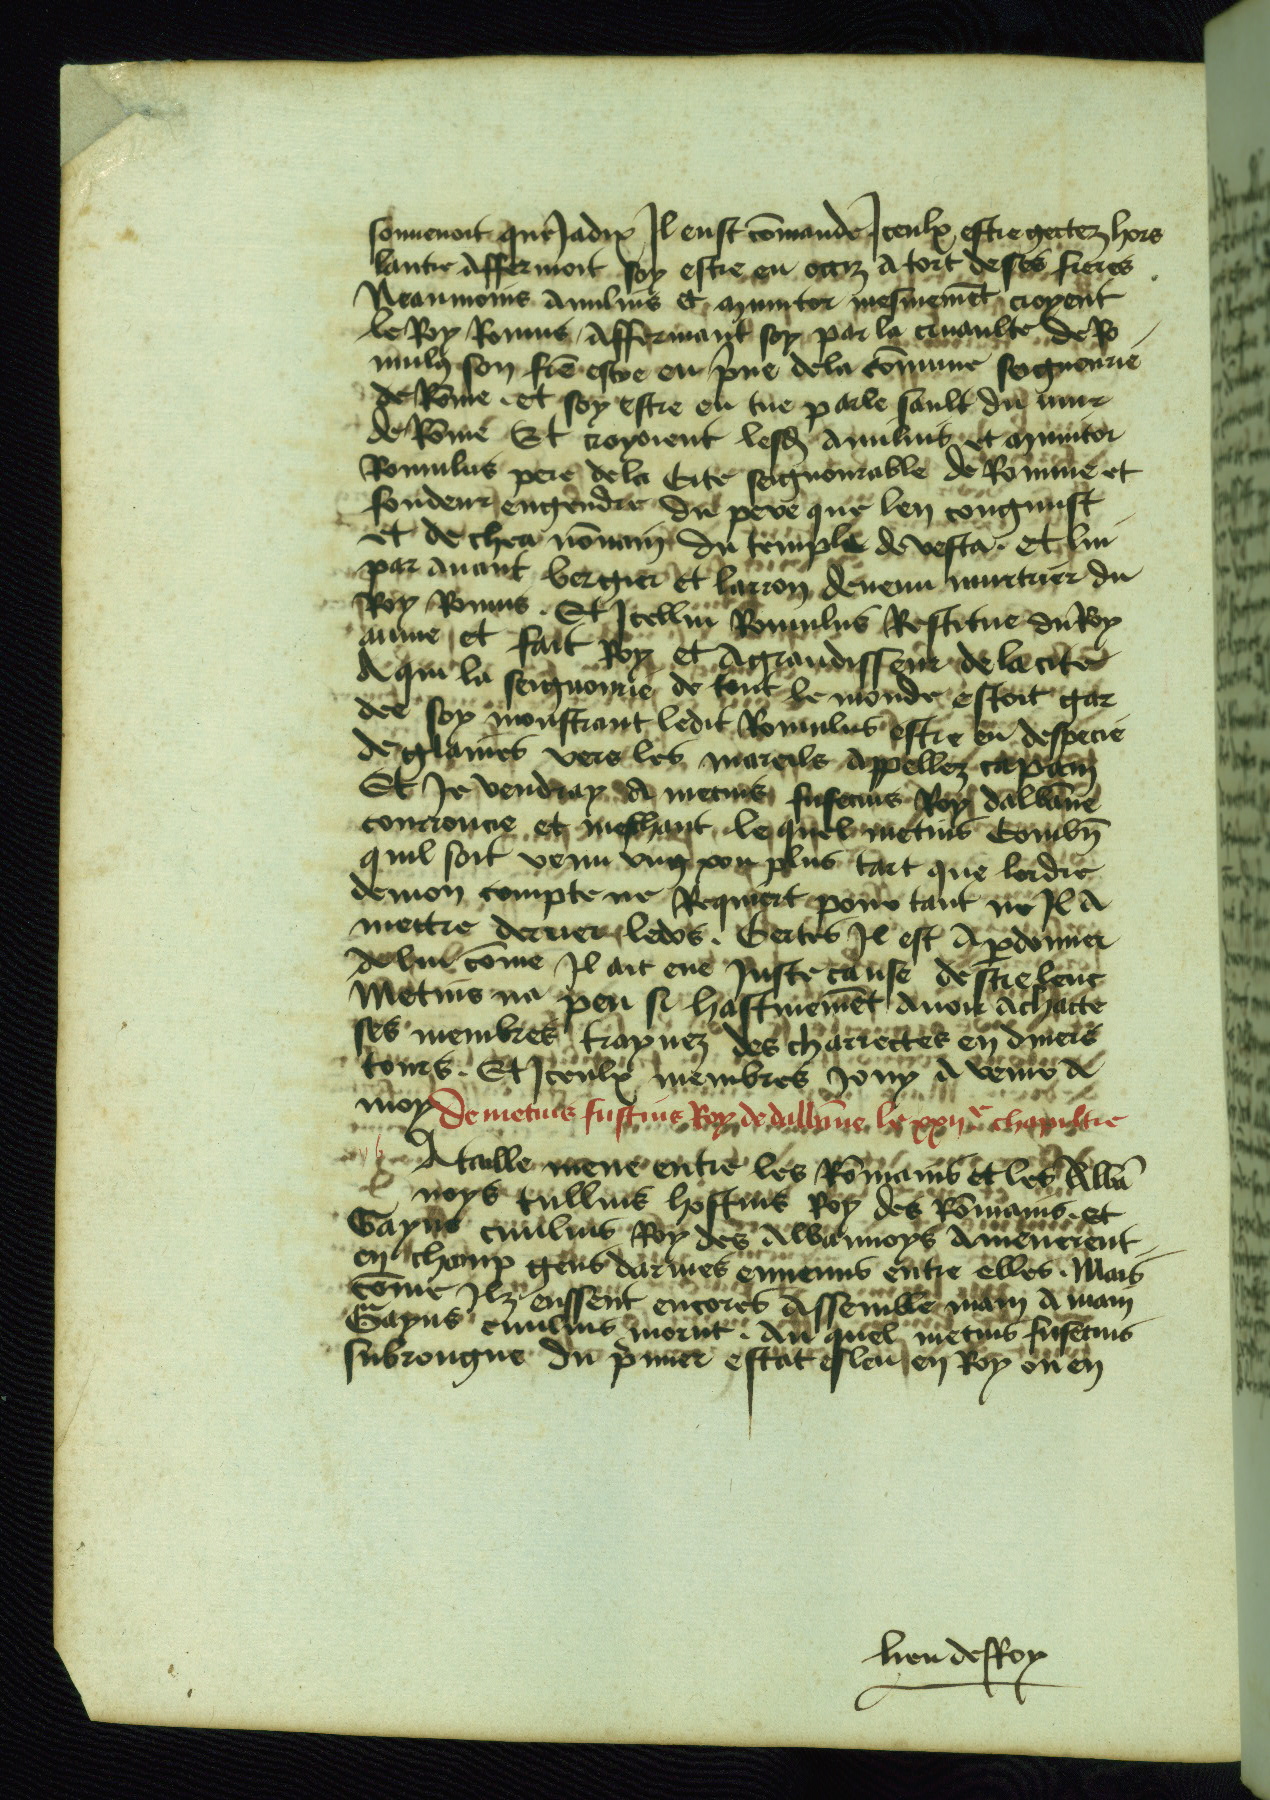 souvenoit que Jadix Il eust cōmande Iceulx estre gectez hors
lautre Affermoit soy estre en occiz A tort de ses freres
Neaumoins Amulius et munitor mesmemēt croyent
le Roy Romus Affermant soy par la cruaulte de Ro
mulꝯ son frē estre en pͥue de la cōmune seignourie
de Rōme . et soy estre en tue par le sault du mur
de Rōme Et croyoient lesd Amulius et munitor
Romulus pere de la Cite seignourable de Romme et
fondeur engendre du pere que len congnust
et de rhea nōnain du temple de vesta . et lui
par auant bergier et larron deuenu murtrier du
Roy Romus . Et Icellui Romulus Restitue du Roy
aume et fait Roy et Agrandisseur de la cite
A qui la seignourie de tout le monde estoit gar
dee soy monstrant ledit Romulus estre en despecie
de glaiues vers les mareils Appellez capren
Et Je vendray A metius fusetius Roy dalbāne
courroucie et meschant le quel metius Combiē
quil soit venu vng pou plus tart que lordre
de mon compte ne Requiert pour tant ne Il A
mettre derrier le dos . Certes Il est A pdonner
A lui cōme Il ait eue Juste cause destre lent
Metius na peu si hastiuemēt auoir Achatte
ses membres traynez des charrectes en diuers
tours . Et Iceulx membres Jony A venir A
moy De metius fustius Roy de dalbāne le xxii<sup>e</sup> chapiltre
b Ataille mene entre les Rōmains et les Albā
noys tullius hostius Roy des Rōmains . et
Gayus ciuilius Roy des Albannoys Amenerent
en champ gens darmes ennemis entre elles . Mais
cōme Ilz eussent encores Assemble main A main
Gayus ciuilius morut . Au quel metius fusetius
subrougue du pͥmier estat esleu en Roy ou en
lieu de Roy